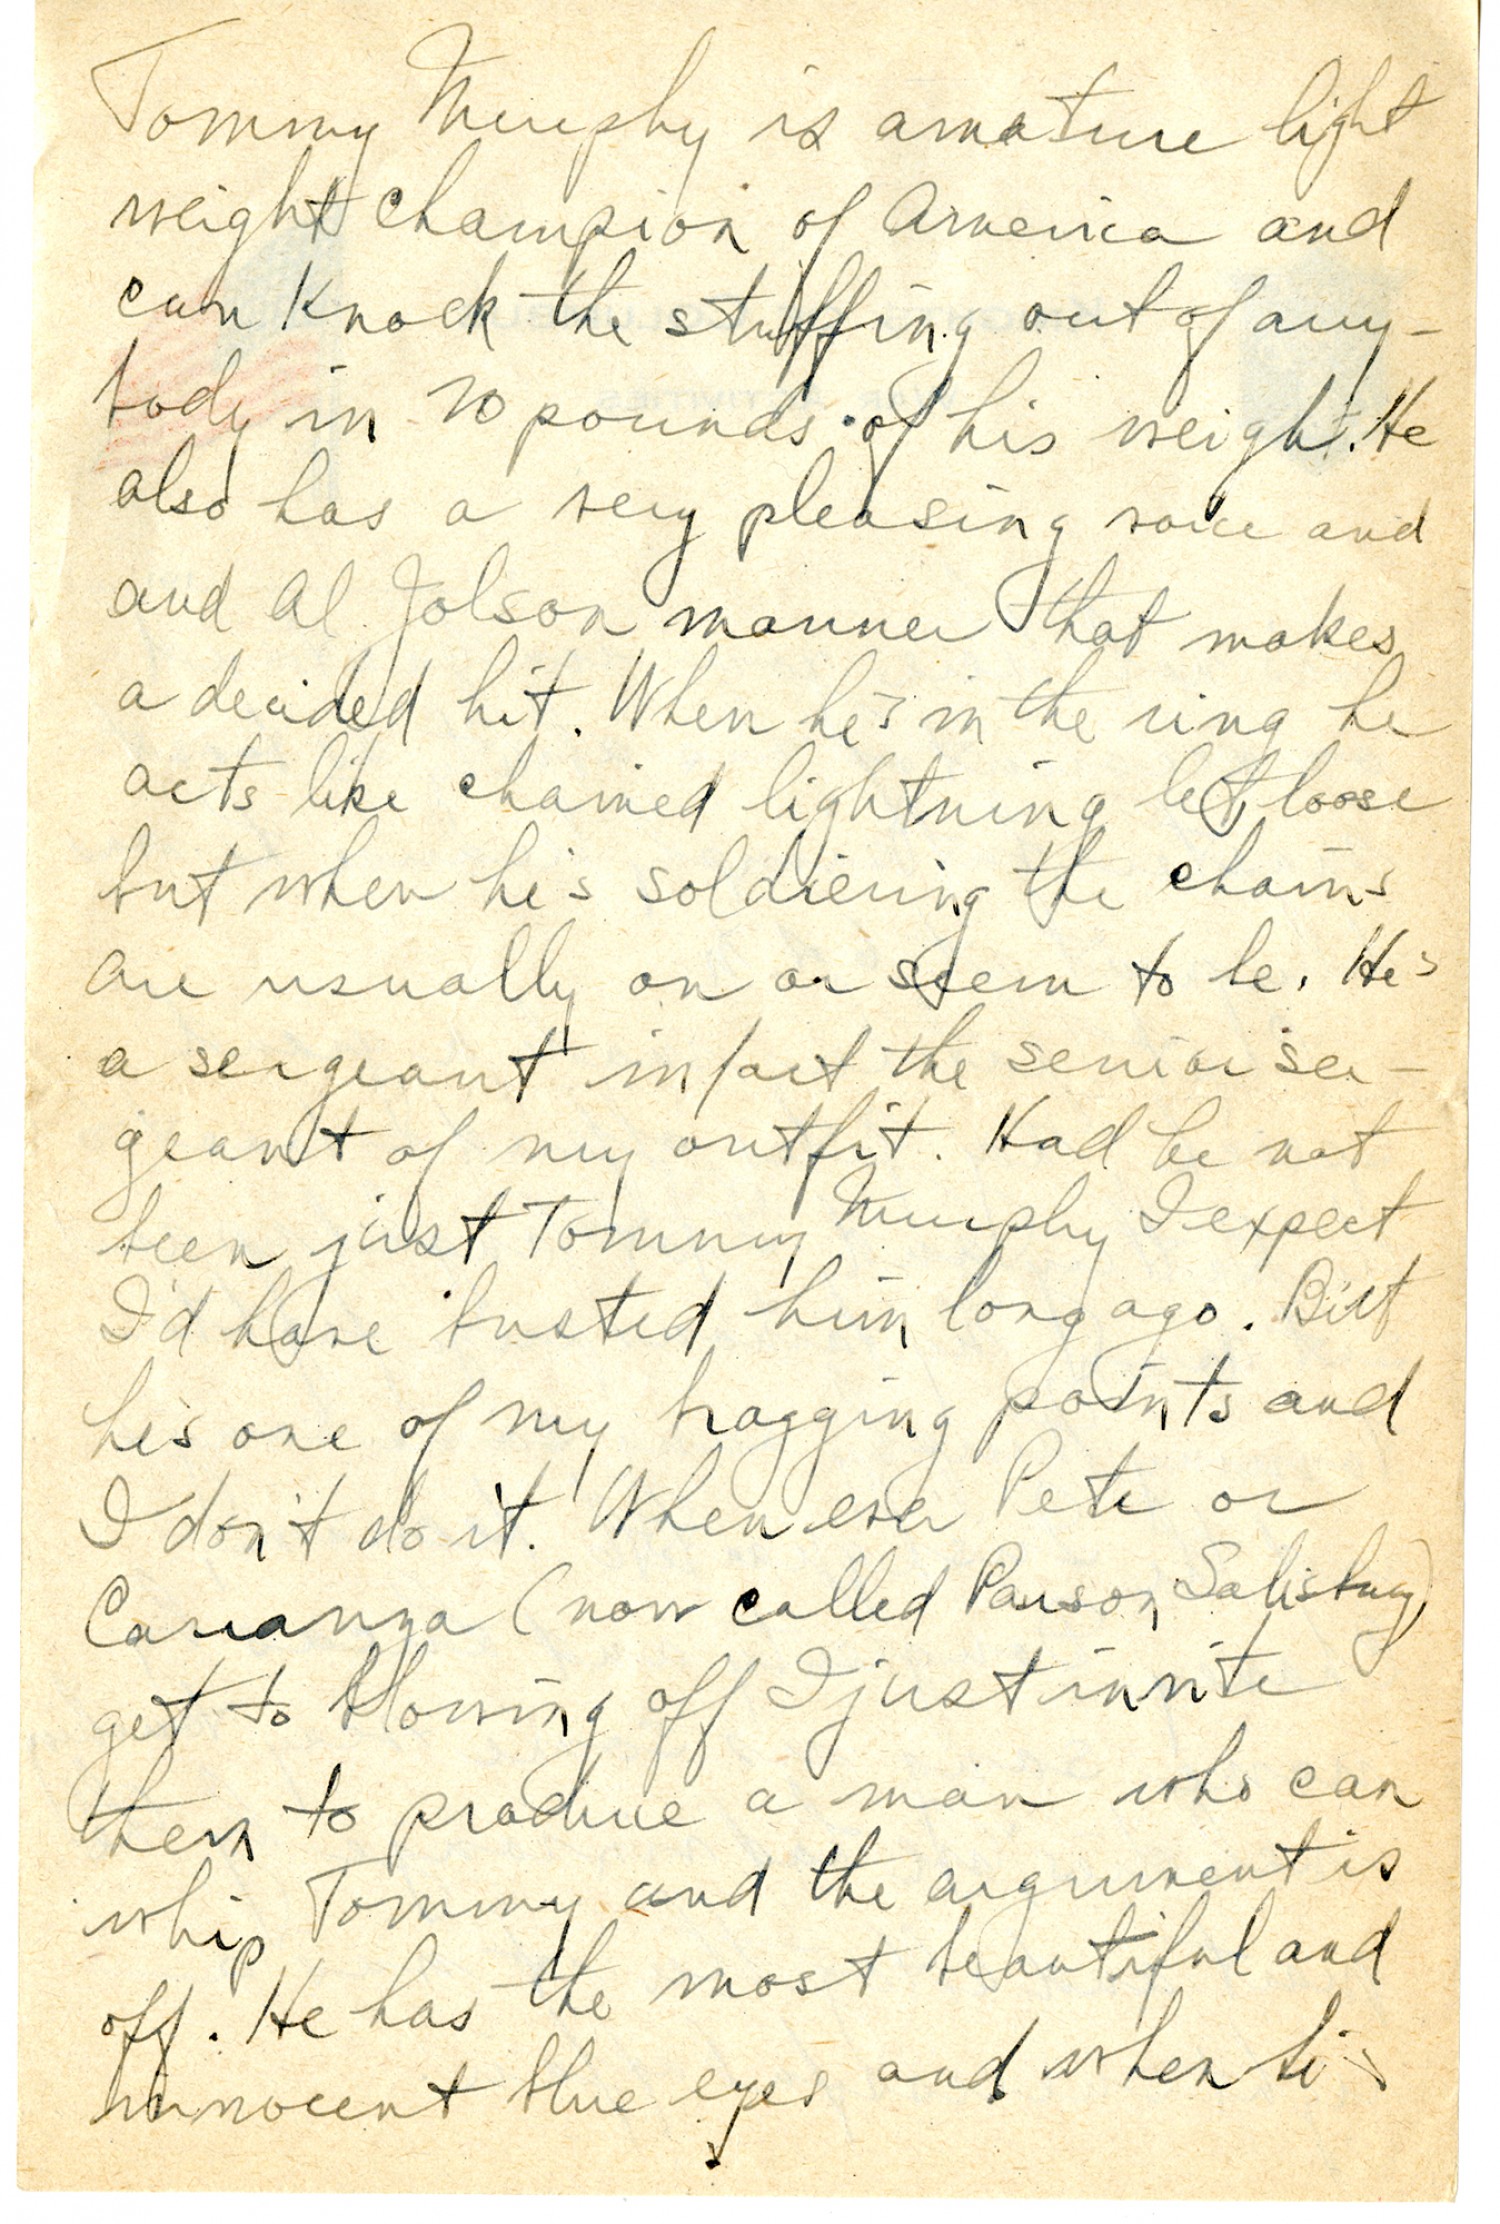 Tommy Murphy is amature light
weight champion of America and
can knock the stuffing out of any-
body in 20 pounds of his weight. He
also has a very pleasing voice and
and Al Jolson manner that makes
a decided hit. When he's in the ring he
acts like chained lightning let loose
but when he's soldiering the chains
are usually on or seem to be. He's
a sergeant in fact the senior ser-
geant of my outfit. Had he not
been just Tommy Murphy I expect
I'd have busted him long ago. But
he's one of my bragging points and
I don't do it. When ever Pete or
Carranza (now called Parson Salisbury)
get to blowing off I just invite
them to produce a man who can
whip Tommy and the argument is
off. He has the most beautiful and
innocent blue eyes and when he's